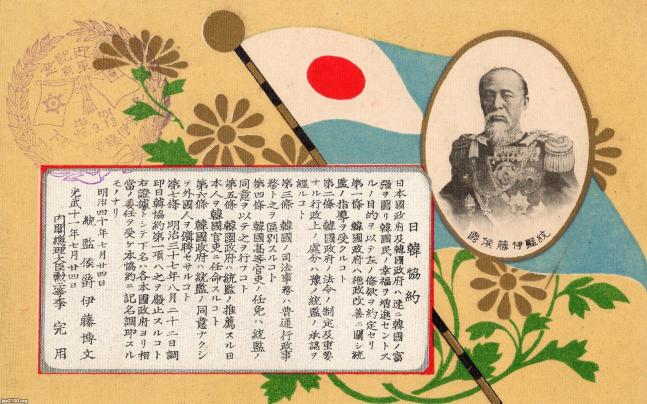 統監伊藤侯爵
日韓協約
日本國政府及韓國政府ハ速ニ韓國ノ富
强ヲ圖リ韓國民ノ幸福ヲ增進セントス
ルノ目的ヲ以テ左ノ條欵ヲ約定セリ
第一條 韓國政府ハ施政改善ニ關シ統
監ノ指導ヲ受クルコト
第二條 韓國政府ノ法令ノ制定及重要
ナル行政上ノ處分ハ豫メ統監ノ承認ヲ
經ルコト
第三條 韓國ノ司法事務ハ普通行政事
務ト之ヲ區別スルコト
第四條 韓國高等官吏ノ任免ハ統監ノ
同意ヲ以テ之ヲ行フコト
第五條 韓國政府ハ統監ノ推薦スル日
本人ヲ韓國官吏ニ任命スルコト
第六條 韓國政府ハ統監ノ同意ナクシ
テ外國人ヲ傭聘セサルコト
第七條 明治三十七年八月二十二日調
印日韓協約第一項ハ之ヲ廢止スルコト
右證據トシテ下名ハ各本國政府ヨリ相
當ノ委任ヲ受ケ本協約ニ記名調印スル
モノナリ
明治四十年七月廿四日
統監侯爵伊藤博文
光武十一年七月廿四日
內閣總理大臣勳二等李完用
jaa2100.org